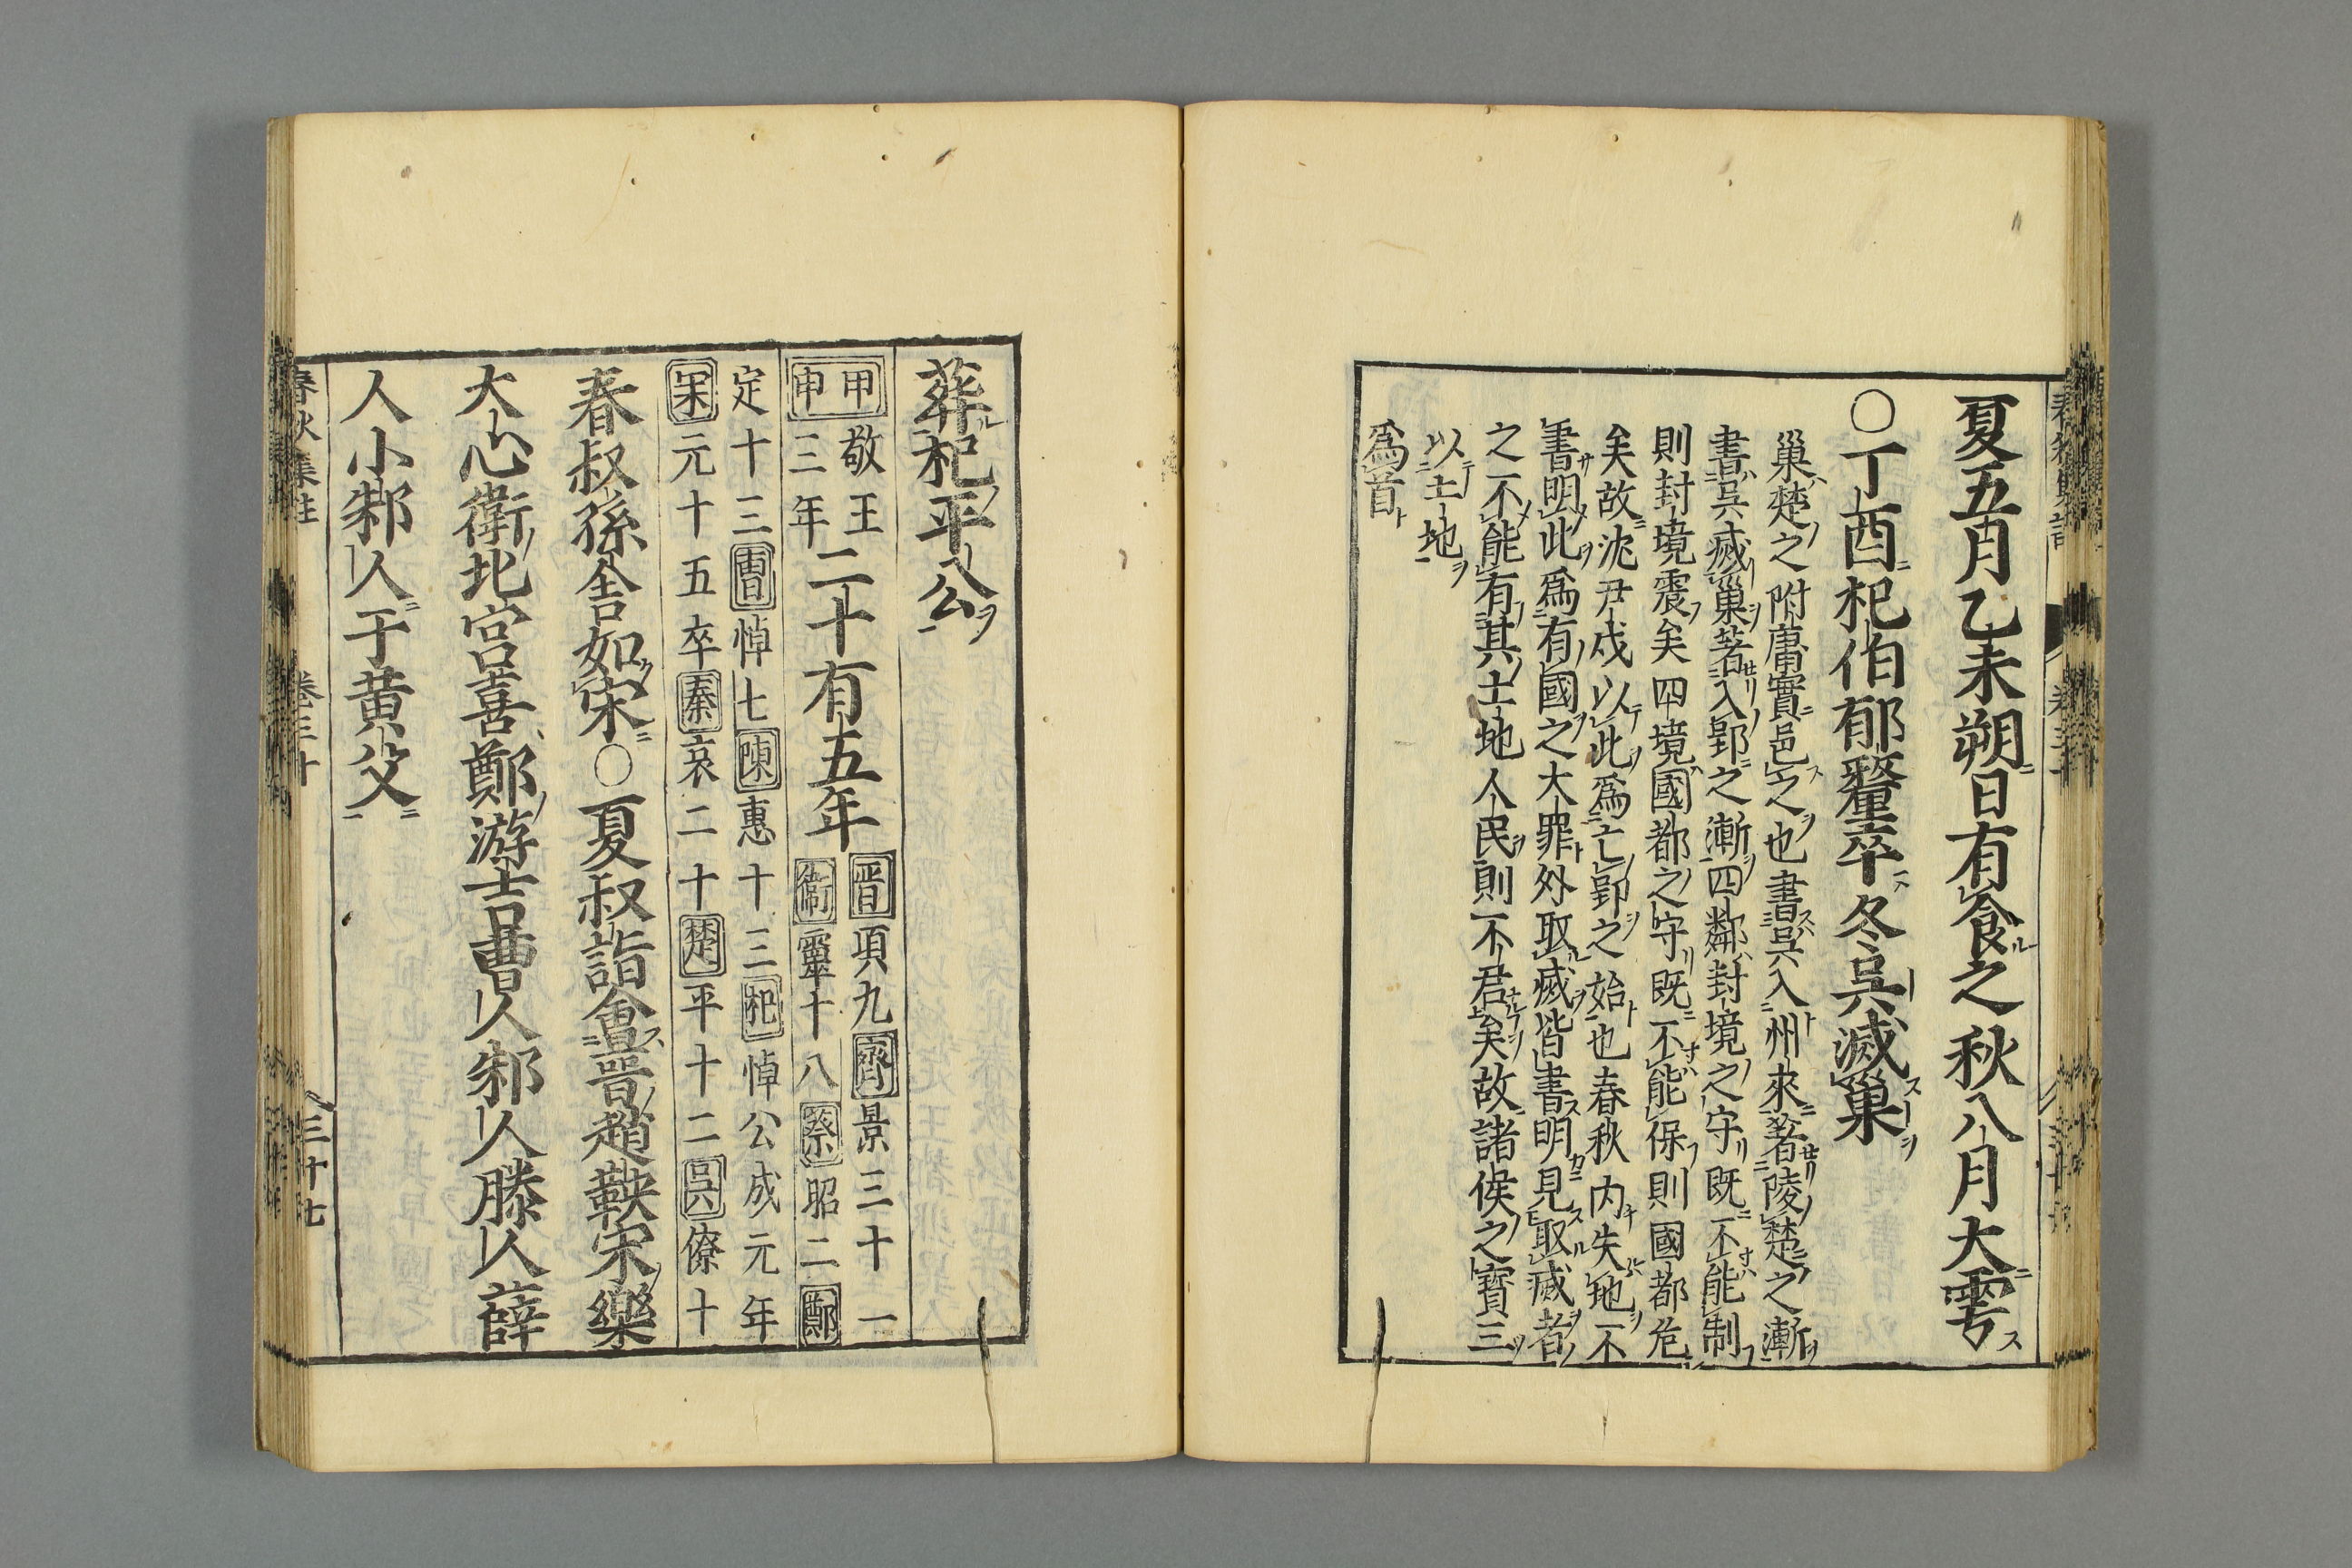 夏五月乙未朔日有食之秋八月大雩
〇丁酉杞伯郁釐卒冬吳滅巢
巢楚之附庸實邑之也書吳入州來著陵楚之漸
書吳滅巢著入郢之漸四鄰封境之守既不能制
則封境震矣四境國都之守既不能保則國都危
矣故沈尹戌以此爲亡郢之始也春秋内失地不
書明此爲有國之大罪外取滅皆書明見取滅者
之不能有其土地人民則不君矣故諸侯之寳三
以土地
爲首
葬杞平公
甲申 敬王三年 二十有五年 晋頃九齊景三十一衛靈十八蔡昭二鄭
定十三曹悼七陳惠十三杞悼公成元年
宋元十五卒秦哀二十楚平十二吳僚十
春叔孫舍如宋〇夏叔詣會晋趙鞅宋樂
大心衛北宮喜鄭游吉曹人邾人滕人薛
人小邾人于黄父
春秋集註 卷三十 三十七